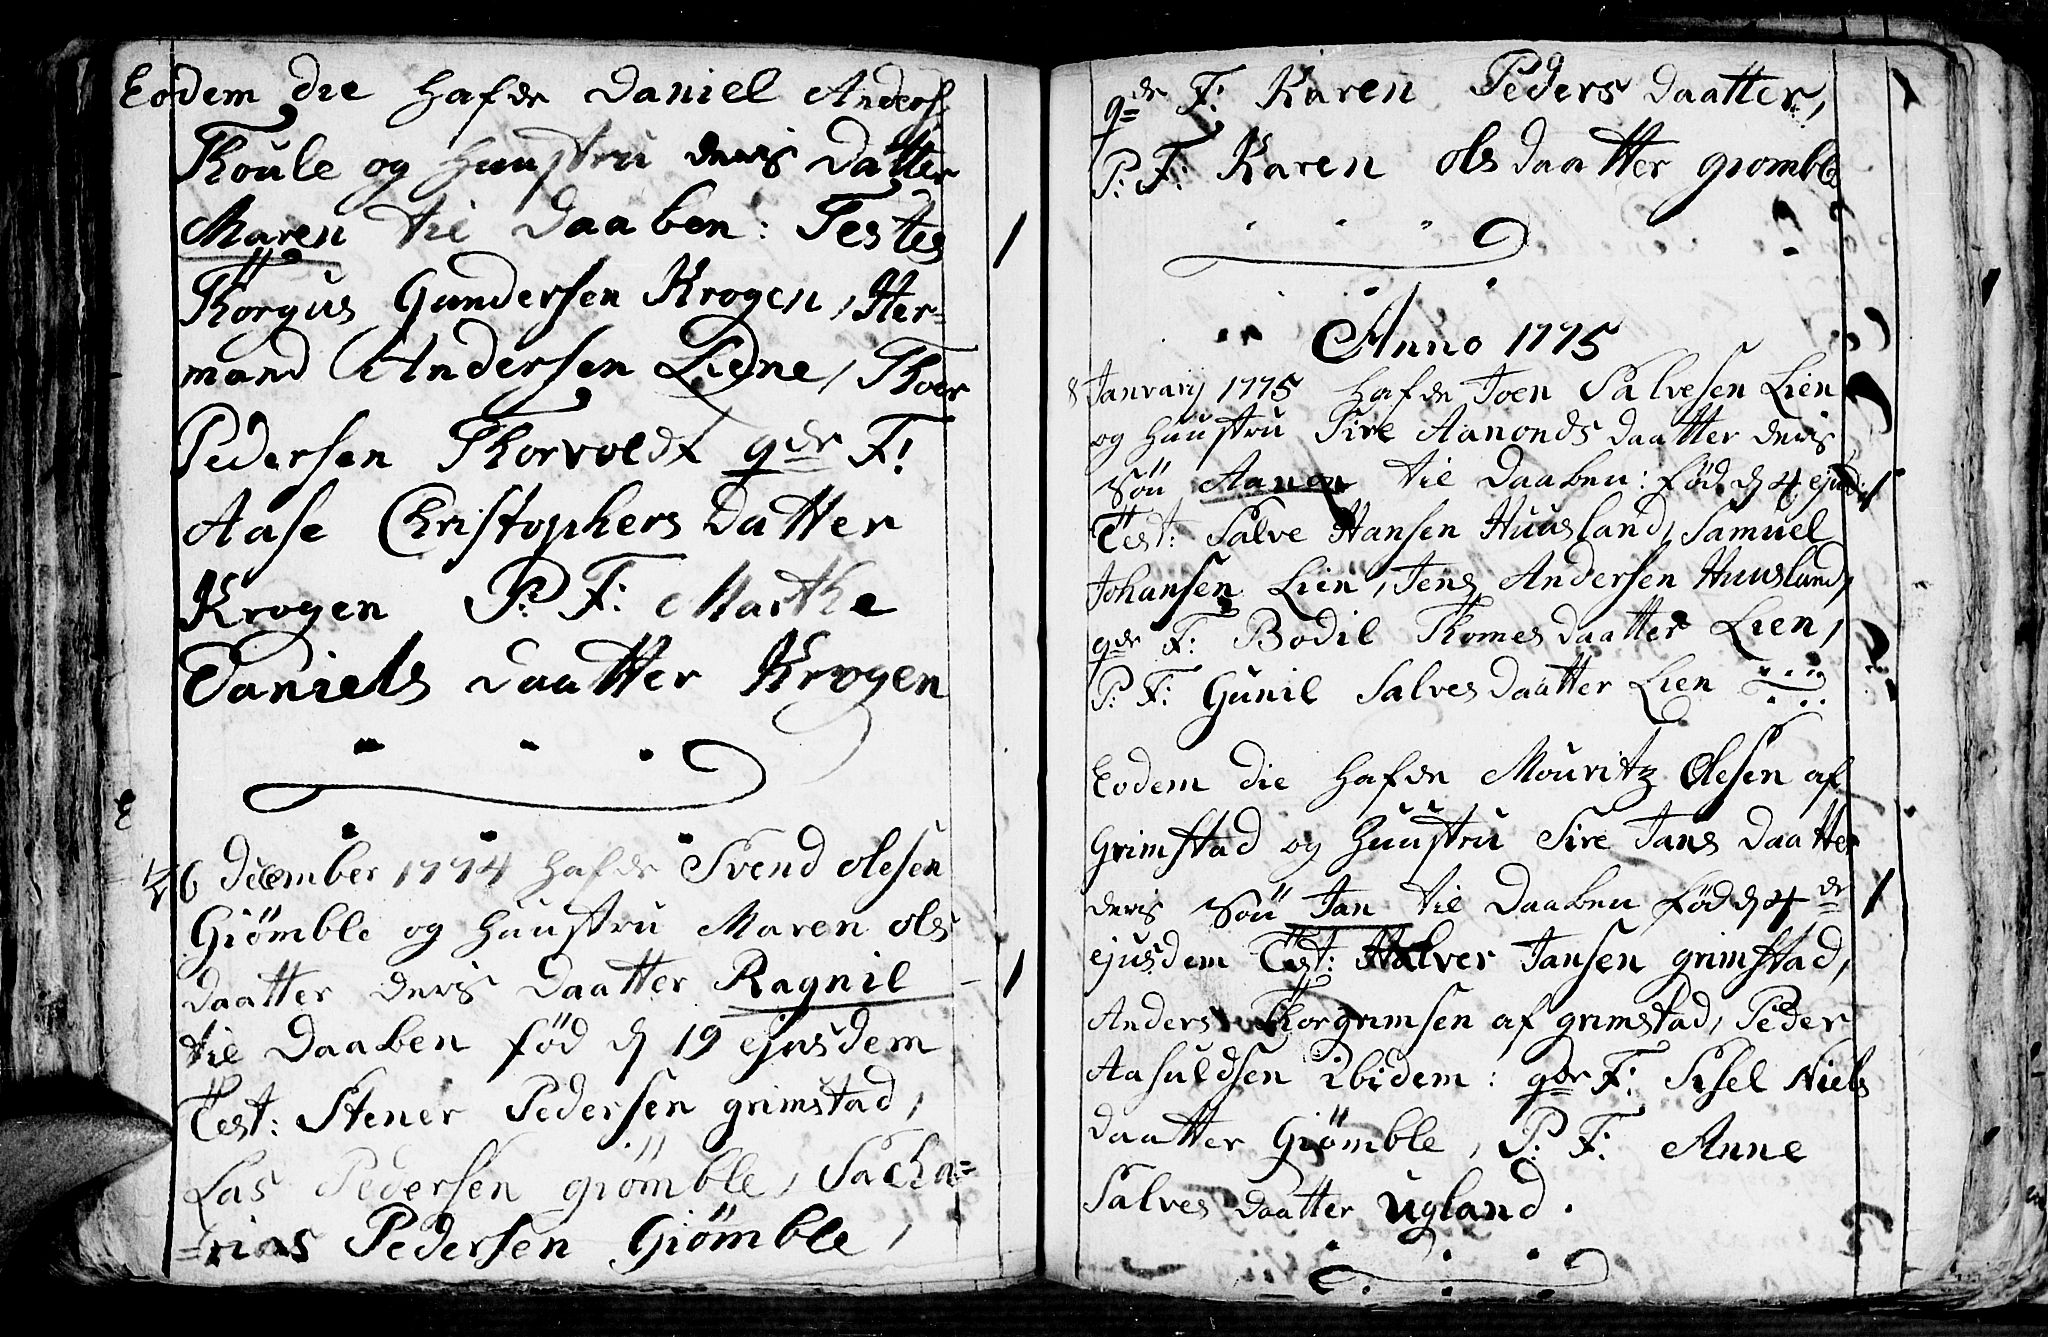 Eodem die hafde Daniel Anders
Thoule og huustru deris Datter
Maren til Daaben: Testes
Thorgus Gundersen Krogen, Her=
mand Andersen Liene, Thoer
Pedersen Thorvoldt qde F:
Aase Christophers Datter
Krogen P: F: Marthe
Daniels daatter Krogen
26 December 1774 hafde Svend olesen
Giömble og huustru Maren ols
daatter deris daatter Ragnil
til Daaben född d 19 ejusdem
Test: Stener Pedersen grimstad,
Las Pedersen giömble, Sacha=
=rias Pedersen Giömble,
qde F: Karen Peders daatter,
P: F: Karen olsdaatter giomble
Anno 1775
8 Janvarij 1775 hafde Joen Salvesen Lien
og huustru Sire Aanonds daatter deris
Sön Aanen til Daaben: född d 4 ejusd:
Test: Salve Hansen Huusland, Samuel
Johansen Lien, Jens Andersen Huusland,
qde F: Bodil Thomesdaatter Lien,
P: F: Gunil Salvesdaatter Lien
Eodem die hafde Mouritz Olesen af
Grimstad og huustru Sire Jans daatter
deris Sön Jan til Daaben född d 4de
ejusdem Test: Halver Jansen grimstad,
Anders Thorgrimsen af grimstad, Peder
Aasuldsen ibidem: qde F: Sisel Niels
daatter Giömble, P: F: Anne
Salves daatter Ugland.